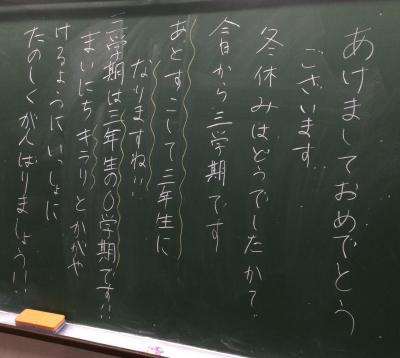 あけましておめでとう
ございます
冬休みはどうでしたかで
今日から三学期です
あとすこしで三年生に
なりますね!!
三学期は三年生の〇学期です!!
まいにちキラリとかがや
けるようにいっしょに
たのしくがんばりましょう!!